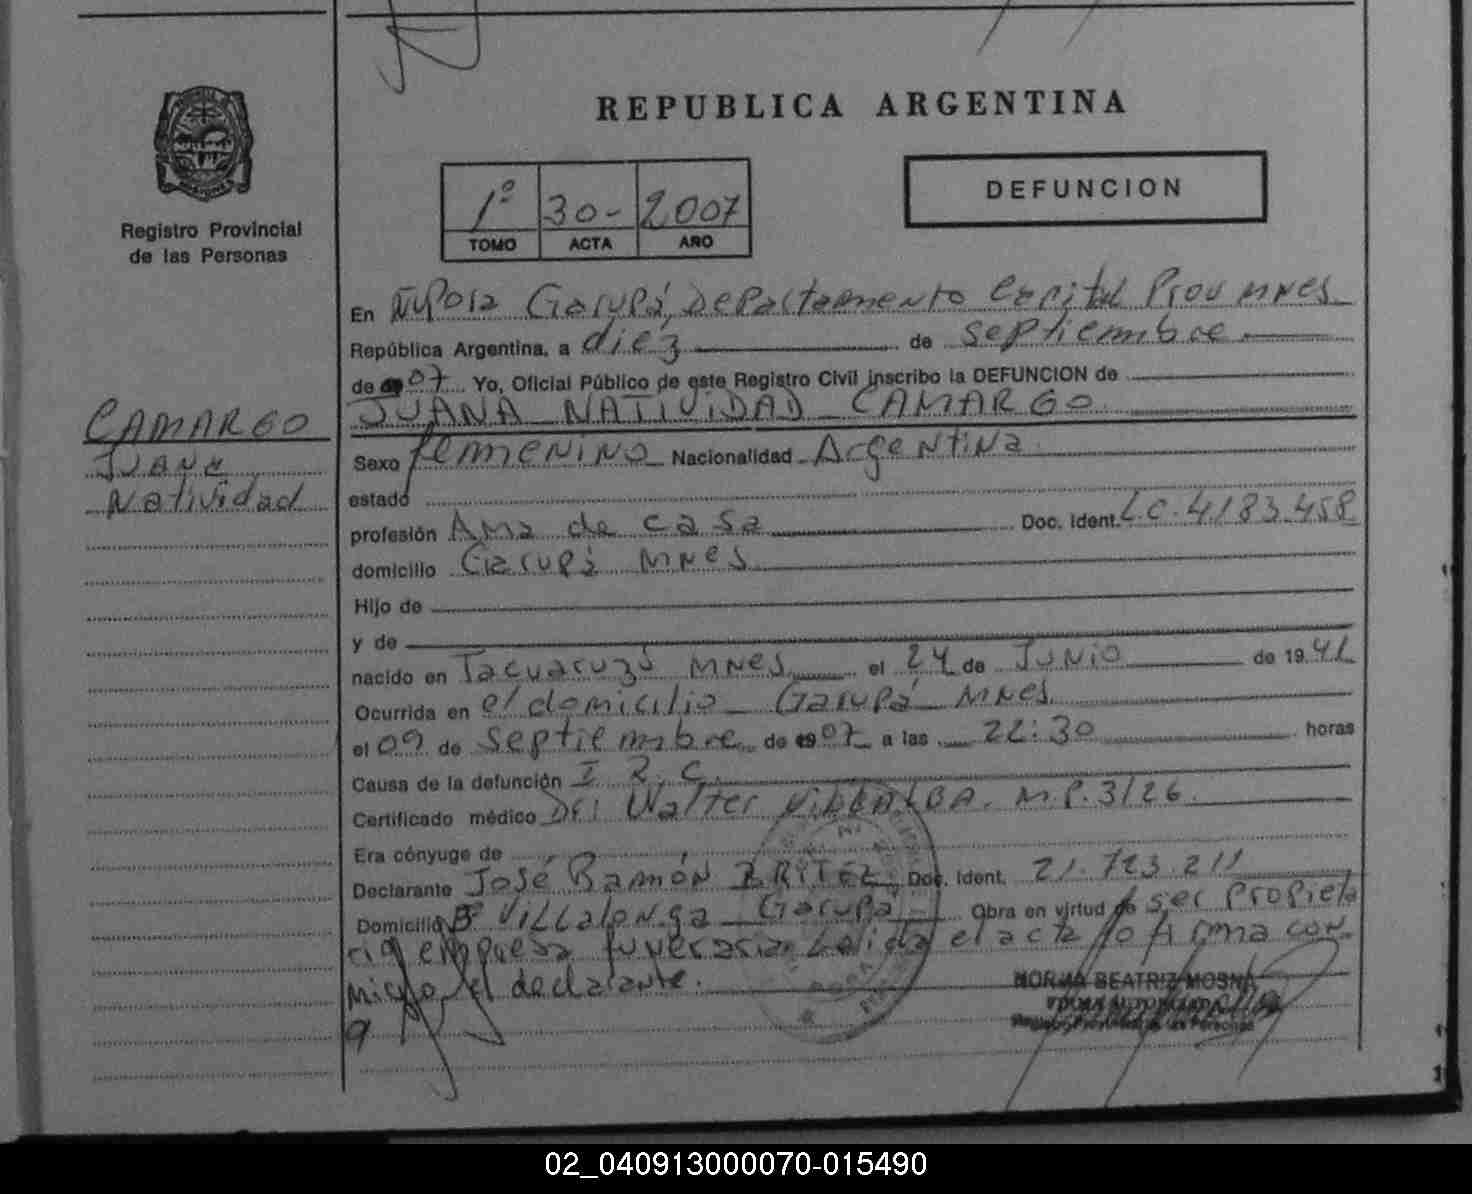 REPUBLICA ARGENTINA
Registro Provincial
de las Personas
1º 30- 2007
TOMO ACTA AÑO
DEFUNCION
En Ñuporá Garupá, Departamento Capital Prov Mnes.
República Argentina, a diez de septiembre
de 07 Yo, Oficial Público de este Registro Civil inscribo la DEFUNCION de
JUANA NATIVIDAD CAMARGO
CAMARGO
JUANA
Natividad
Sexo femenino Nacionalidad Argentina
estado
profesión Ama de casa Doc. Ident. L.C. 4.183.458
domicilio Garupá Mnes
Hijo de
y de
nacido en Tacuaruzú Mnes el 24 de Junio de 1941
Ocurrida en el domicilio Garupá Mnes
el 09 de Septiembre de 1907 a las 22:30 horas
Causa de la defunción I R. C.
Certificado médico Dr: Walter VILLALBA. M.P. 3126.
Era cónyuge de
Declarante José Ramón BRITEZ Doc. Ident. 21.723.211
Domicilio Bº Villalonga Garupá Obra en virtud de ser propieta
ria empresa funeraria. Leída el acta lo firma con
migo el declarante.
NORMA BEATRIZ MOSNA
Registro Provincial de las Personas
02_040913000070-015490